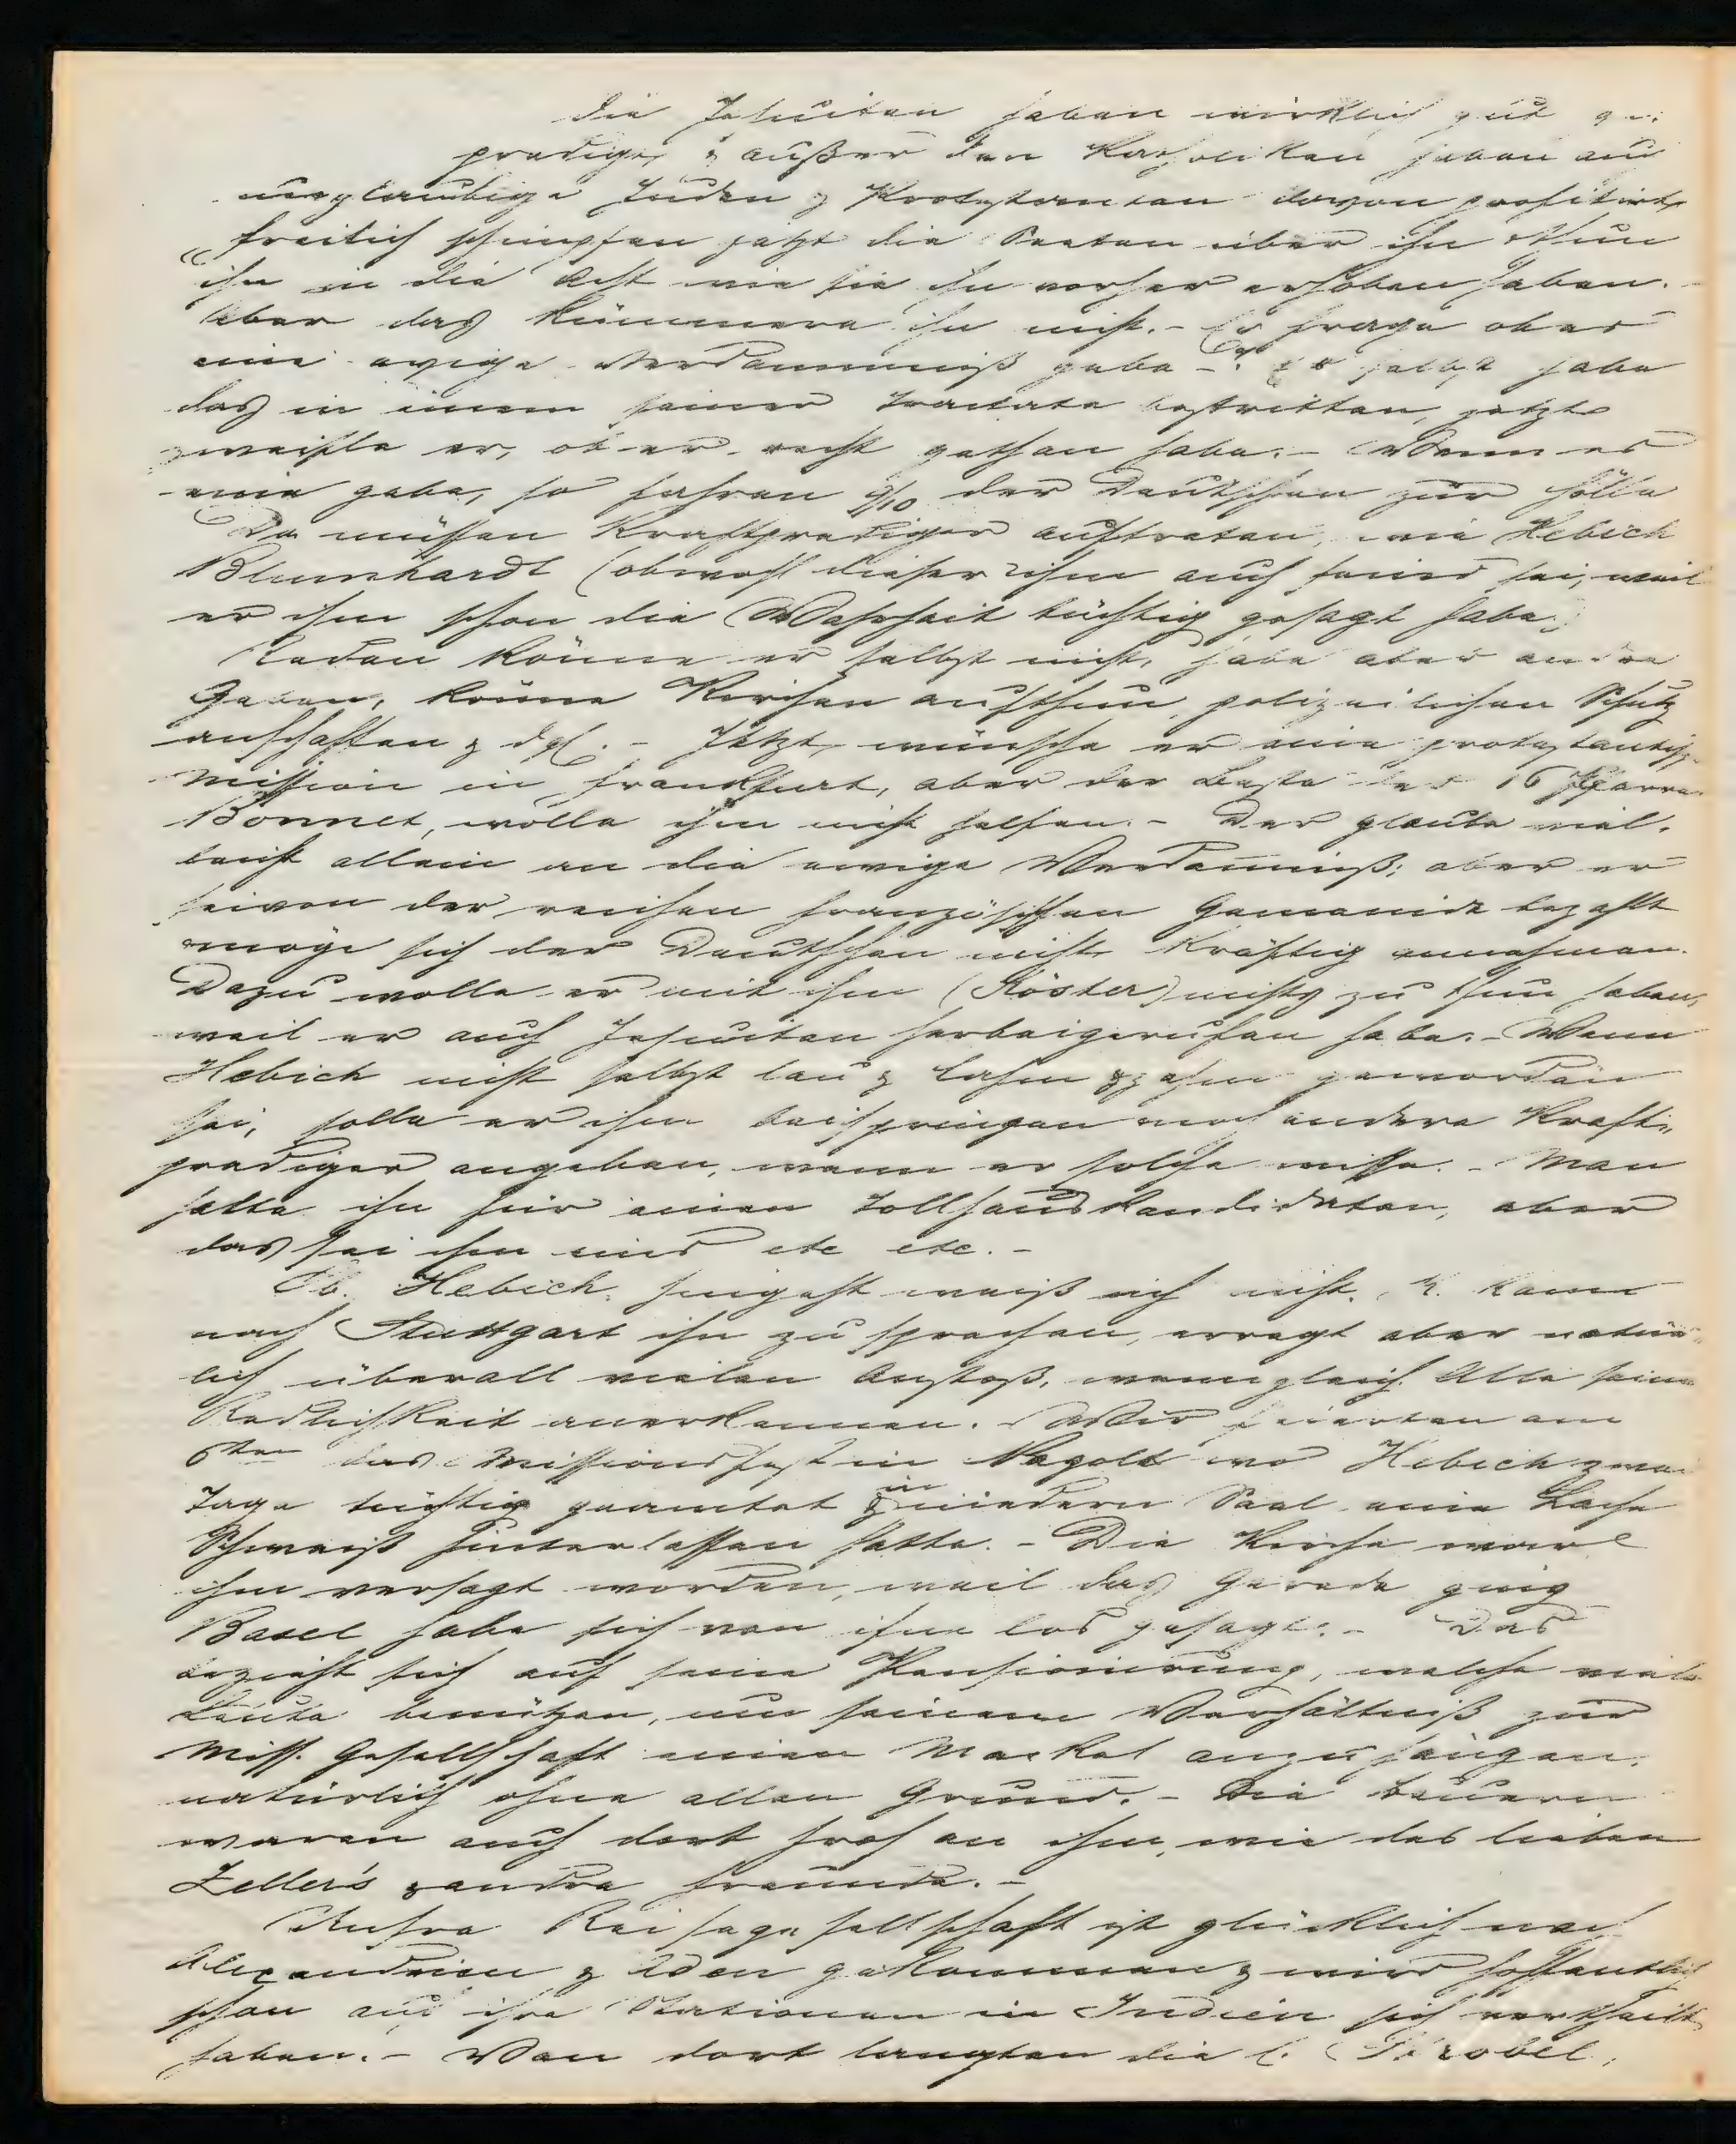 die Jesuiten haben wirklich gut ge-
predigt & außer den Katholiken haben auch
ungläubige Juden & Protestanten davon profitirt,
freilich schimpfen jetzt die Pfaffen über ihn & thun
ihn in die Acht wie sie ihn vorher erhoben haben.
Aber das kümmere ihn nicht. - Er frage ob es
eine ewige Verdammniß gebe - Er selbst habe
das in einem seiner Tractate bestritten, jetzt
zweifle er, ob er recht gethan habe. - Wenn es
eine gebe, so fahren 9/10 der Deutschen zur Hölle
Da müssen Kraftprediger auftreten, wie Hebich
Blumhardt (obwohl dieser ihm auch feind sei, weil
er ihm schon die Wahrheit tüchtig gesagt habe.)
Reden könne er selbst nicht, habe aber andre
Gaben, könne Kirchen aufthun, polizeilichen Schutz
anschaffen & dgl. - Jetzt wünsche er eine protestantisch
Mission in Frankfurt, aber der Beste der 16 Pfarrer
Bonnet, wolle ihm nicht helfen. - Der glaube viel-
leicht allein an die ewige Verdammniß; aber er
sei von der reichen französischen Gemeinde bezahlt
möge sich der Deutschen nicht kräftig annehmen.
Dazu wolle er mit ihm (Köster) nichts zu thun haben,
weil er auch Jesuiten herbeigerufen habe. - Wenn
Hebich nicht selbst lau & lahm & zahm geworden
sei, solle er ihm beispringen noch andere Kraft-
prediger angeben, wenn er solche wisse. - Man
halte ihn für einen Tollhauskandidaten, aber
das sei ihm eins etc etc. -
Ob Hebich hingeht weiß ich nicht. K. kam
nach Stuttgart ihn zu sprechen, erregt aber natür-
lich überall vielen Anstoß, wenn gleich Alle seine
Redlichkeit anerkennen. - Wir feierten am
6ten das Missionsfest in Nagold wo Hebich zwei
Tage tüchtig gearntet & in niedern Saal eine Lache
Schweiß hinterlassen hatte. - Die Kirche war
ihm versagt worden, weil das Gerede ging
Basel habe sich von ihm los gesagt. - Das
bezieht sich auf seine Pensionirung, welche viele
Leute benützen, um seinem Verhältniß zur
Miss. Gesellschaft einen Mackel anzuhängen,
natürlich ohne allen Grund. - Die Bauern
waren auch dort froh an ihm, wie das lieben
Zeller's & andre Freunde. -
Unsre Reisegesellschaft ist glücklich nach
Alexandrien & Aden gekommen & wird hoffentlich
schon auf ihre Stationen in Indien sich vertheilt
haben. - Von dort langten die l. Strobel,